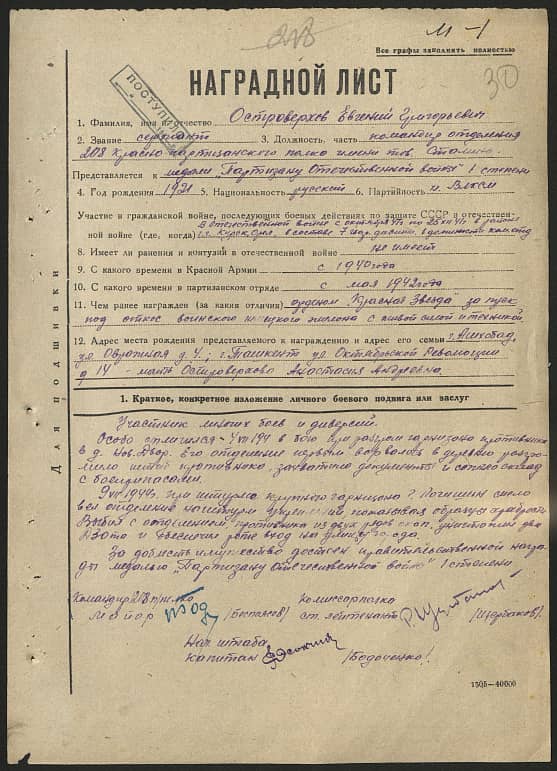 м-1
Все графы заполнить полностью
30
НАГРАДНОЙ ЛИСТ
ПОСТУПИЛО
1. Фамилия, имя и отчество Островерхов Евгений Григорьевич
2. Звание сержант 3. Должность, часть командир отделения
208 Красно-партизанского полка имени тов. Сталина
Представляется к медали "Партизану Отечественной войны" I степени
4. Год рождения 1921 5. Национальность русский 6. Партийность чл. ВЛКСМ
Участие в гражданской войне, последующих боевых действиях по защите СССР и отечествен-
ной войне (где, когда) В отечественной войне с октября в районе
в составе 7
8. Имеет ли ранения и контузии в отечественной войне не имеет
9. С какого времени в Красной Армии с 1940 года
10. С какого времени в партизанском отряде с мая 1942 года
11. Чем ранее награжден (за какие отличия) орденом "Красная Звезда" за пуск
под откос воинского эшелона с живой силой и техникой
12. Адрес места рождения представляемого к награждению и адрес его семьи г. Ашхабад,
ул. Овражная д. 4; г. Ташкент ул. Октябрьской Революции
д 14 - мать Островерхова Анастасия Андреевна
Для подшивки
1. Краткое, конкретное изложение личного боевого подвига или заслуг
Участник многих боев и диверсий.
Особо отличился в бою при разгроме гарнизона противника
в д. Нов. Двор. Его отделение первым ворвалось в деревню разгро-
мило штаб противника, захватило документы и склад
с боеприпасами.
1944г. при штурме крупного гарнизона г. Логишин смело
вел отделение на штурм укреплений, показывая образцы храбрости
Выбил с отделением противника из двух рядов окоп, уничтожил два
Дзота и вход на улицу города.
За доблесть и мужество достоин правительственной награ-
ды медалью "Партизану Отечественной войны" I степени
Командир 208 п/полка Комиссар полка
майор (Беспоясов) ст. лейтенант (Щербаков)
Нач штаба
капитан
1505—40000